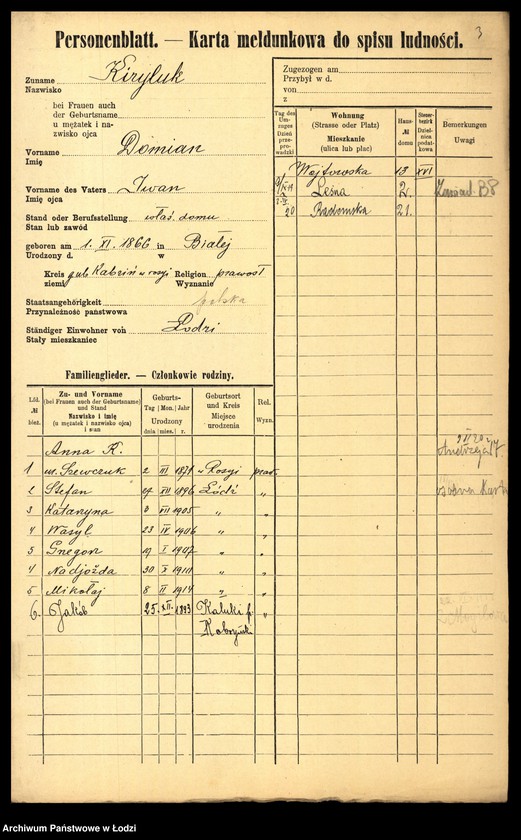 3
Personenblatt. — Karta meldunkowa do spisu ludności.
Zuname Kiryluk
Nazwisko
bei Frauen auch
der Geburtsname
u mężatek i na-
zwisko ojca
Vorname Domian
Imię
Vorname des Vaters Iwan
Imię ojca
Stand oder Berufsstellung właś. domu
Stan lub zawód
geboren am 1. XI. 1866 in Białej
Urodzony d. w
Kreis gub Kobriń w rosyi Religion prawosł
ziemi Wyznanie
Staatsangehörigkeit polska
Przynależność państwowa
Ständiger Einwohner von Łodzi
Stały mieszkaniec
Zugezogen am
Przybył w d.
von
z
Tag des Um-zuges Dzień prze-prowadzki
Wohnung (Strasse oder Platz) Mieszkanie (ulica lub plac)
Haus- № domu
Steuer-bezirk Dziel-nica podat-kowa
Bemerkungen Uwagi
Wójtowska 13 XVI
Leśna 2.
20 Radomska 21.
Familienglieder. — Członkowie rodziny.
Lfd. № bież.
Zu- und Vorname (bei Frauen auch der Geburtsname) und Stand Nazwisko i imię (u mężatek i nazwisko ojca) i stan
Geburts- Tag Mon. Jahr Urodzony dnia mies. r.
Geburtsort und Kreis Miejsce urodzenia
Rel. Wyzn.
Anna K.
1 ur. Szewczuk 2 III 1871 w Rosyi praw.
2 Stefan 27 XII 1896 Łódź "
3 Kataryna 3 XII 1905 " "
4 Wasyl 23 IV 1906 " "
5 Gregor 19 I 1907 " "
4 Nadjożda 30 X 1911 " "
5 Mikołaj 8 II 1914 " "
6. Jakób 25. XII. 1893 Kaluki p. "
Kobryński
Andrzeja 7
osobna Karta
Archiwum Państwowe w Łodzi